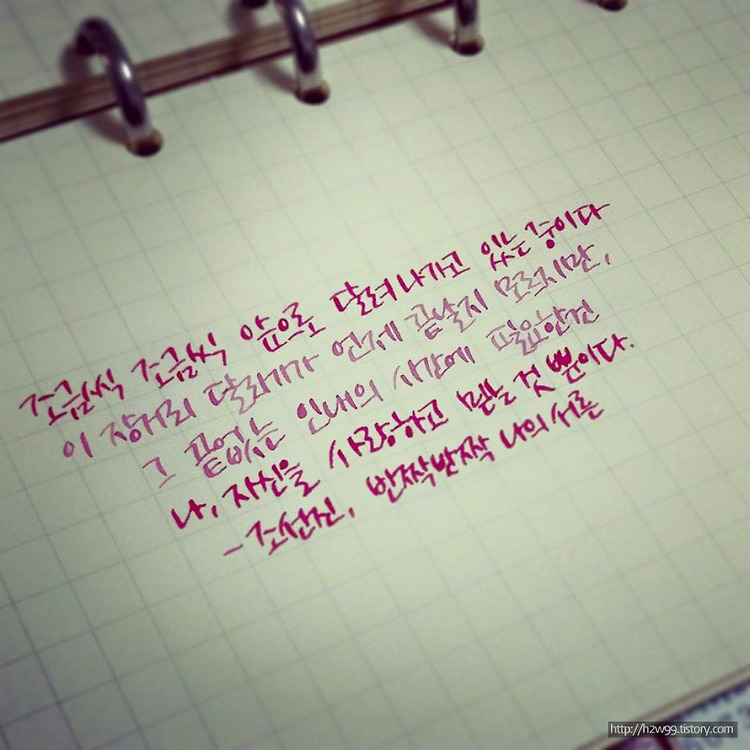 조금씩 조금씩 앞으로 달려 나가고 있는 중이다
이 장거리 달리기가 언제 끝날지 모르지만,
그 끝없는 인내의 시간에 필요한건
나, 자신을 사랑하고 믿는 것 뿐이다.
- 조선진, 반짝반짝 나의 서른
http://h2w99.tistory.com